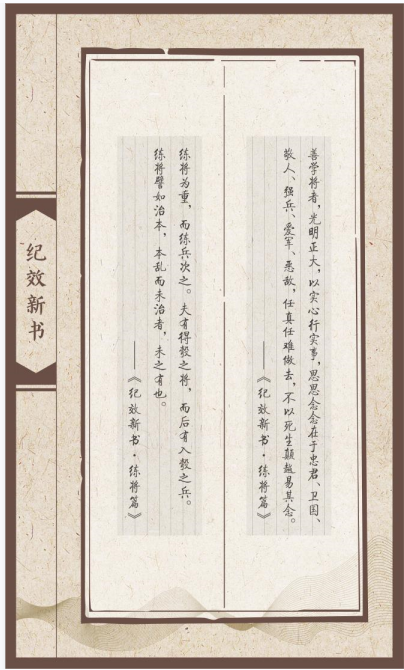 善学将者,光明正大,以实心行实事,思思念念在于忠君、卫国、
敬人、强兵、爱军、恶敌,任真任难做去,不以死生颠越易其念。
——《纪效新书·练将篇》
练将为重,而练兵次之。夫有得彀之将,而后有入彀之兵。
练将譬如治本,本乱而末治者,未之有也。
——《纪效新书·练将篇》
纪效新书